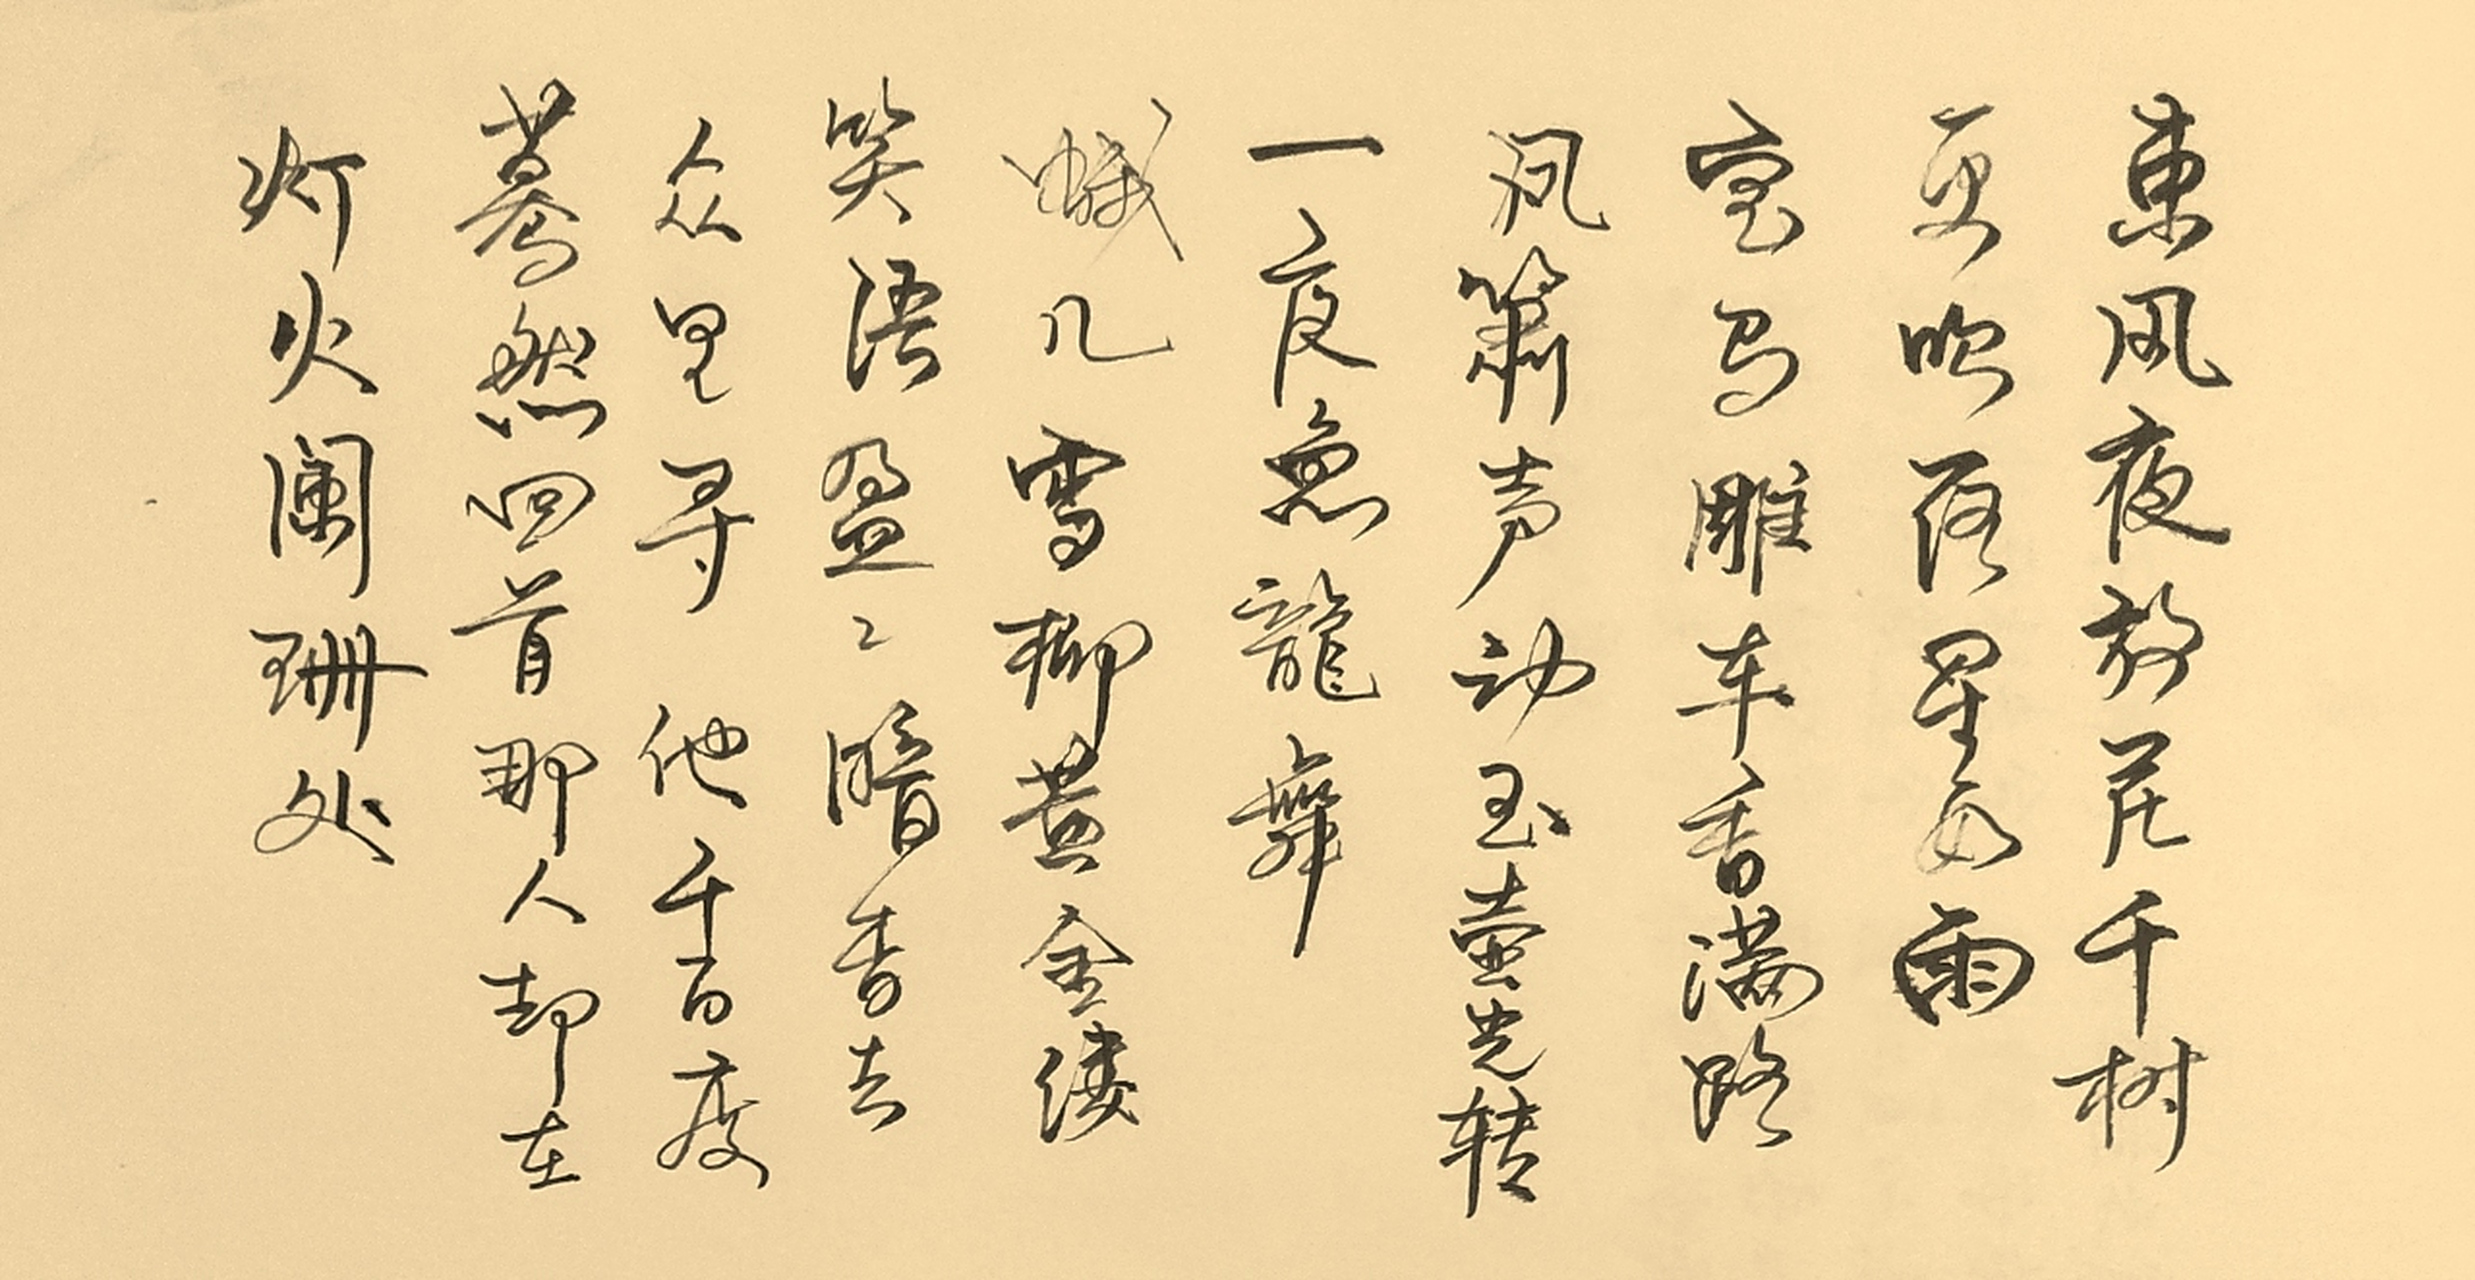 東风夜放花千树
更吹落星如雨
宝马雕车香满路
凤箫声动玉壶光转
一夜魚龍舞
蛾儿雪柳黄金缕
笑语盈〻暗香去
众里寻他千百度
蓦然回首那人却在
灯火阑珊处